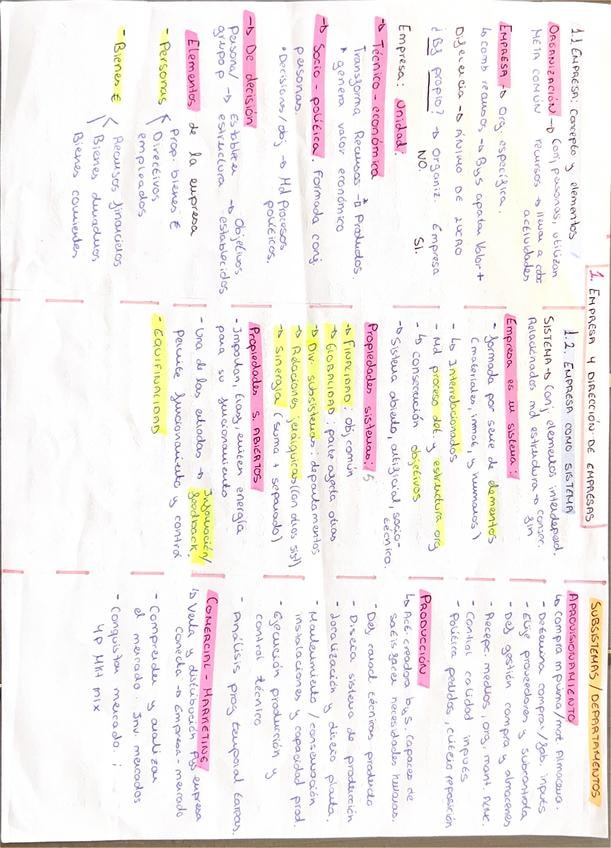 1. EMPRESA Y DIRECCIÓN DE EMPRESAS
1.1 EMPRESA: Concepto y elementos
ORGANIZACIÓN → Conj personas, utilizan
META COMÚN recursos → llevar a cabo
actividades
EMPRESA → Org. específica.
↳ comb recursos → Bys aportan Valor +
Diferencia → ÁNIMO DE LUCRO
¿Bys propio? → Organiz. Empresa
NO. SI.
Empresa: Unidad:
→ Técnico-económica
Transforma Recursos → Productos.
* genera valor económico
→ Socio-política. Formada conj.
personas.
* Decisiones/obj → Md procesos
políticos.
→ De decisión
Persona/ → Establece → Objetivos
grupo p estructura establecidos
Elementos de la empresa
- Personas Prop. bienes €
Directivos
empleados
- Bienes € Recursos financieros
Bienes duraderos
Bienes corrientes
1.2. EMPRESA COMO SISTEMA
SISTEMA → Conj elementos interdepend.
Relacionados md estructura → conser.
fin
Empresa es un sistema:
- formada por serie de elementos
(materiales, inmat, y humanos)
↳ Interrelacionados
- Md proceso del y estructura org
↳ consecución objetivos
→ Sistema abierto, artificial, socio-
técnico.
Propiedades sistemas: 5
→ FINALIDAD: obj común
→ GLOBALIDAD: parte afecta otras
→ Div. subsistemas: departamentos
→ Relaciones jerárquicas (con otros sist)
→ Sinergia (suma + separado)
Propiedades S. ABIERTOS
- Importan, trans, exiten energía
para su funcionamiento
- Una de las entradas → Información/
feedback.
permite funcionamiento y control
- EQUIFINALIDAD
SUBSISTEMAS / DEPARTAMENTOS
APROVISIONAMIENTO
↳ compra m.prima/mat. Almacena.
- Determina compra/fab. inputs
- Elige proveedores y subcontrata
- Des gestión compra y almacenes
- Recepc medios, org, mant
- Control calidad inputs
- Política pedidos, criterio reposición
PRODUCCIÓN
↳ Act creadora bys capaces de
satisfacer necesidades humanas.
- Des técnicas producto
- Diseña sistema de producción
- Localización y diseño planta.
- Mantenimiento/conservación
instalaciones y capacidad prod.
- Ejecución producción y
control técnico
- Análisis proc temporal tareas.
COMERCIAL-MARKETING
↳ Venta y distribución Pys empresa
conecta → Empresa-mercado
- Comprender y analizar
el mercado. Inv. mercados
- Conquistar mercado. :
4p MKt mix